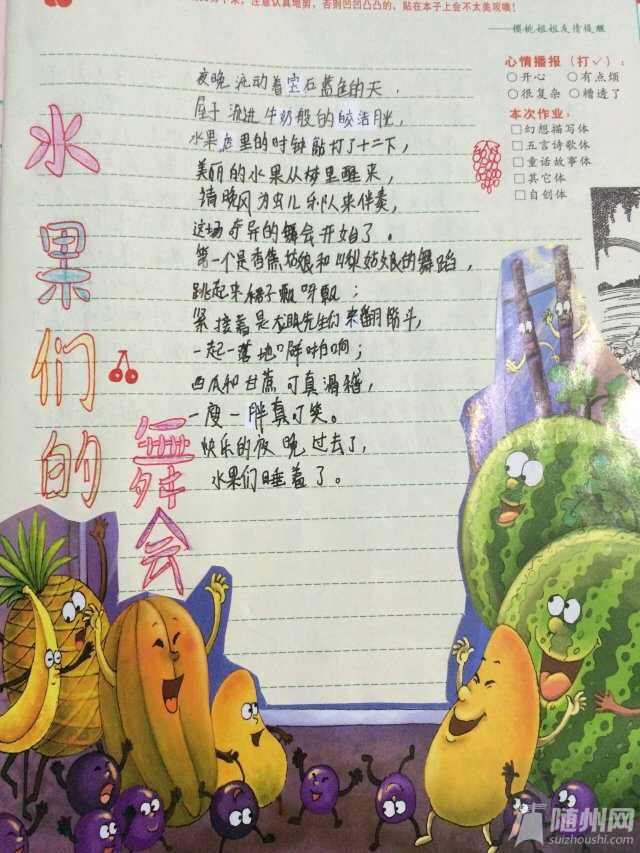 注意认真地剪，否则凹凹凸凸的，贴在本子上会不太美观噢！
——樱桃姐姐友情提醒
心情播报（打√）：
○开心 ○有点烦
○很复杂 ○糟透了
本次作业：
□幻想描写体
□五言诗歌体
□童话故事体
□其它体
□自创体
水果们的
舞会
夜晚流动着宝石蓝色的天，
屋子流进牛奶般的皎洁月光，
水果店里的时钟敲打了十二下，
美丽的水果从梦里醒来，
请晚风为虫儿乐队来伴奏，
这场奇异的舞会开始了。
第一个是香蕉姑娘和鸭梨姑娘的舞蹈，
跳起来裙子飘呀飘；
紧接着是龙眼先生们来翻筋斗，
一起一落地噼啪响；
西瓜和甘蔗可真滑稽，
一瘦一胖真可笑。
快乐的夜晚过去了，
水果们睡着了。
随州网
suizhoushi.com